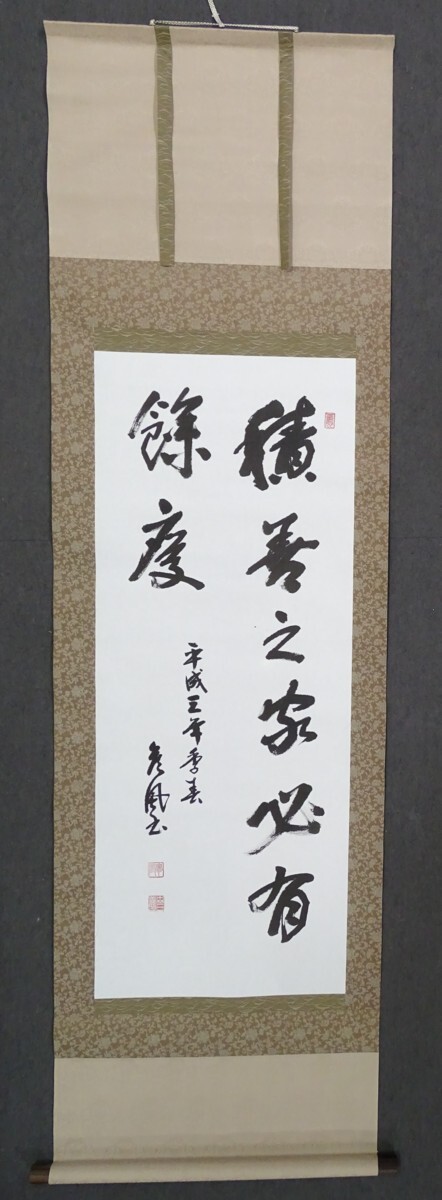 積善之家必有
餘慶
平成三年季春